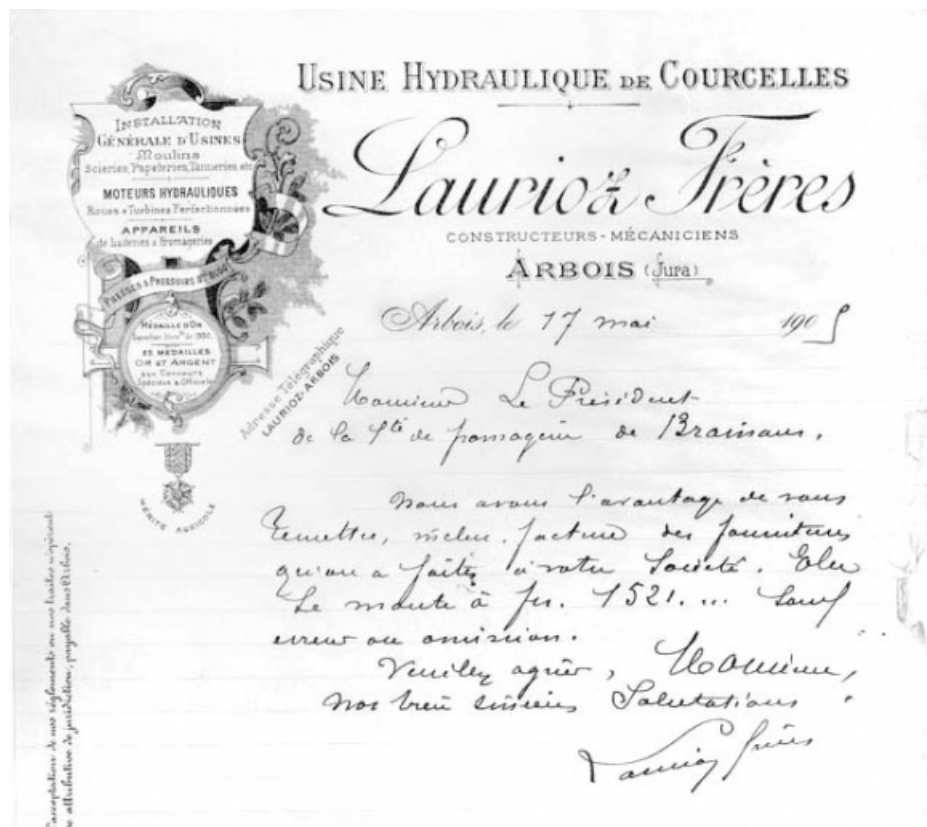 USINE HYDRAULIQUE DE COURCELLES
Laurioz Frères
CONSTRUCTEURS-MÉCANICIENS
ARBOIS (Jura)
INSTALLATION
GÉNÉRALE D'USINES
Moulins
Scieries, Papeteries, Tanneries etc
MOTEURS HYDRAULIQUES
Roues & Turbines Perfectionnées
APPAREILS
de Laiteries & Fromageries
PRESSES & PRESSOIRS
MÉDAILLE D'OR
25 MÉDAILLES
OR ET ARGENT
aux Concours
Spéciaux & Officiels
MÉRITE AGRICOLE
Adresse Télégraphique
LAURIOZ-ARBOIS
Arbois, le 17 mai 1905
Monsieur Le Président
de la Sté de fromagerie de Brainans.
Nous avons l'avantage de vous
remettre, inclus, facture des fournitures
qu'on a faites à votre Société. Elle
se monte à frs. 1521. ... Sauf
erreur ou omission.
Veuillez agréer, Monsieur,
nos bien sincères Salutations.
Laurioz frères
L'acceptation de nos règlements ou nos traites n'opèrent
attributive de juridiction, payable dans Arbois.